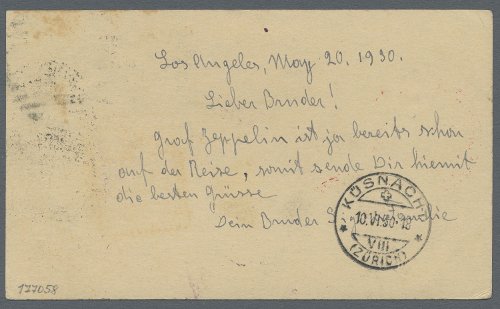 Los Angeles, May 20. 1930.
Lieber Bruder!
Graf Zeppelin ist ja bereits schon
auf der Reise, somit sende Dir hiemit
die besten Grüsse
Dein Bruder
KÜSNACHT
10.VI.30-18
VIII
(ZÜRICH)
177058